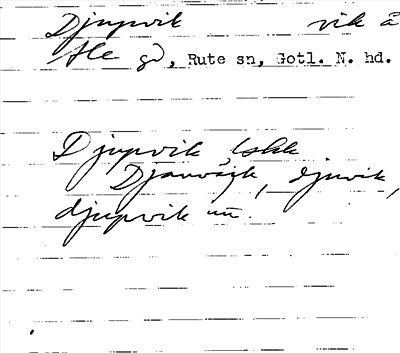 Djupvik vik å
Ale gd, Rute sn, Gotl. N. hd.
Djupvik, lskk
Djauvaik, djuvik,
djupvik un.